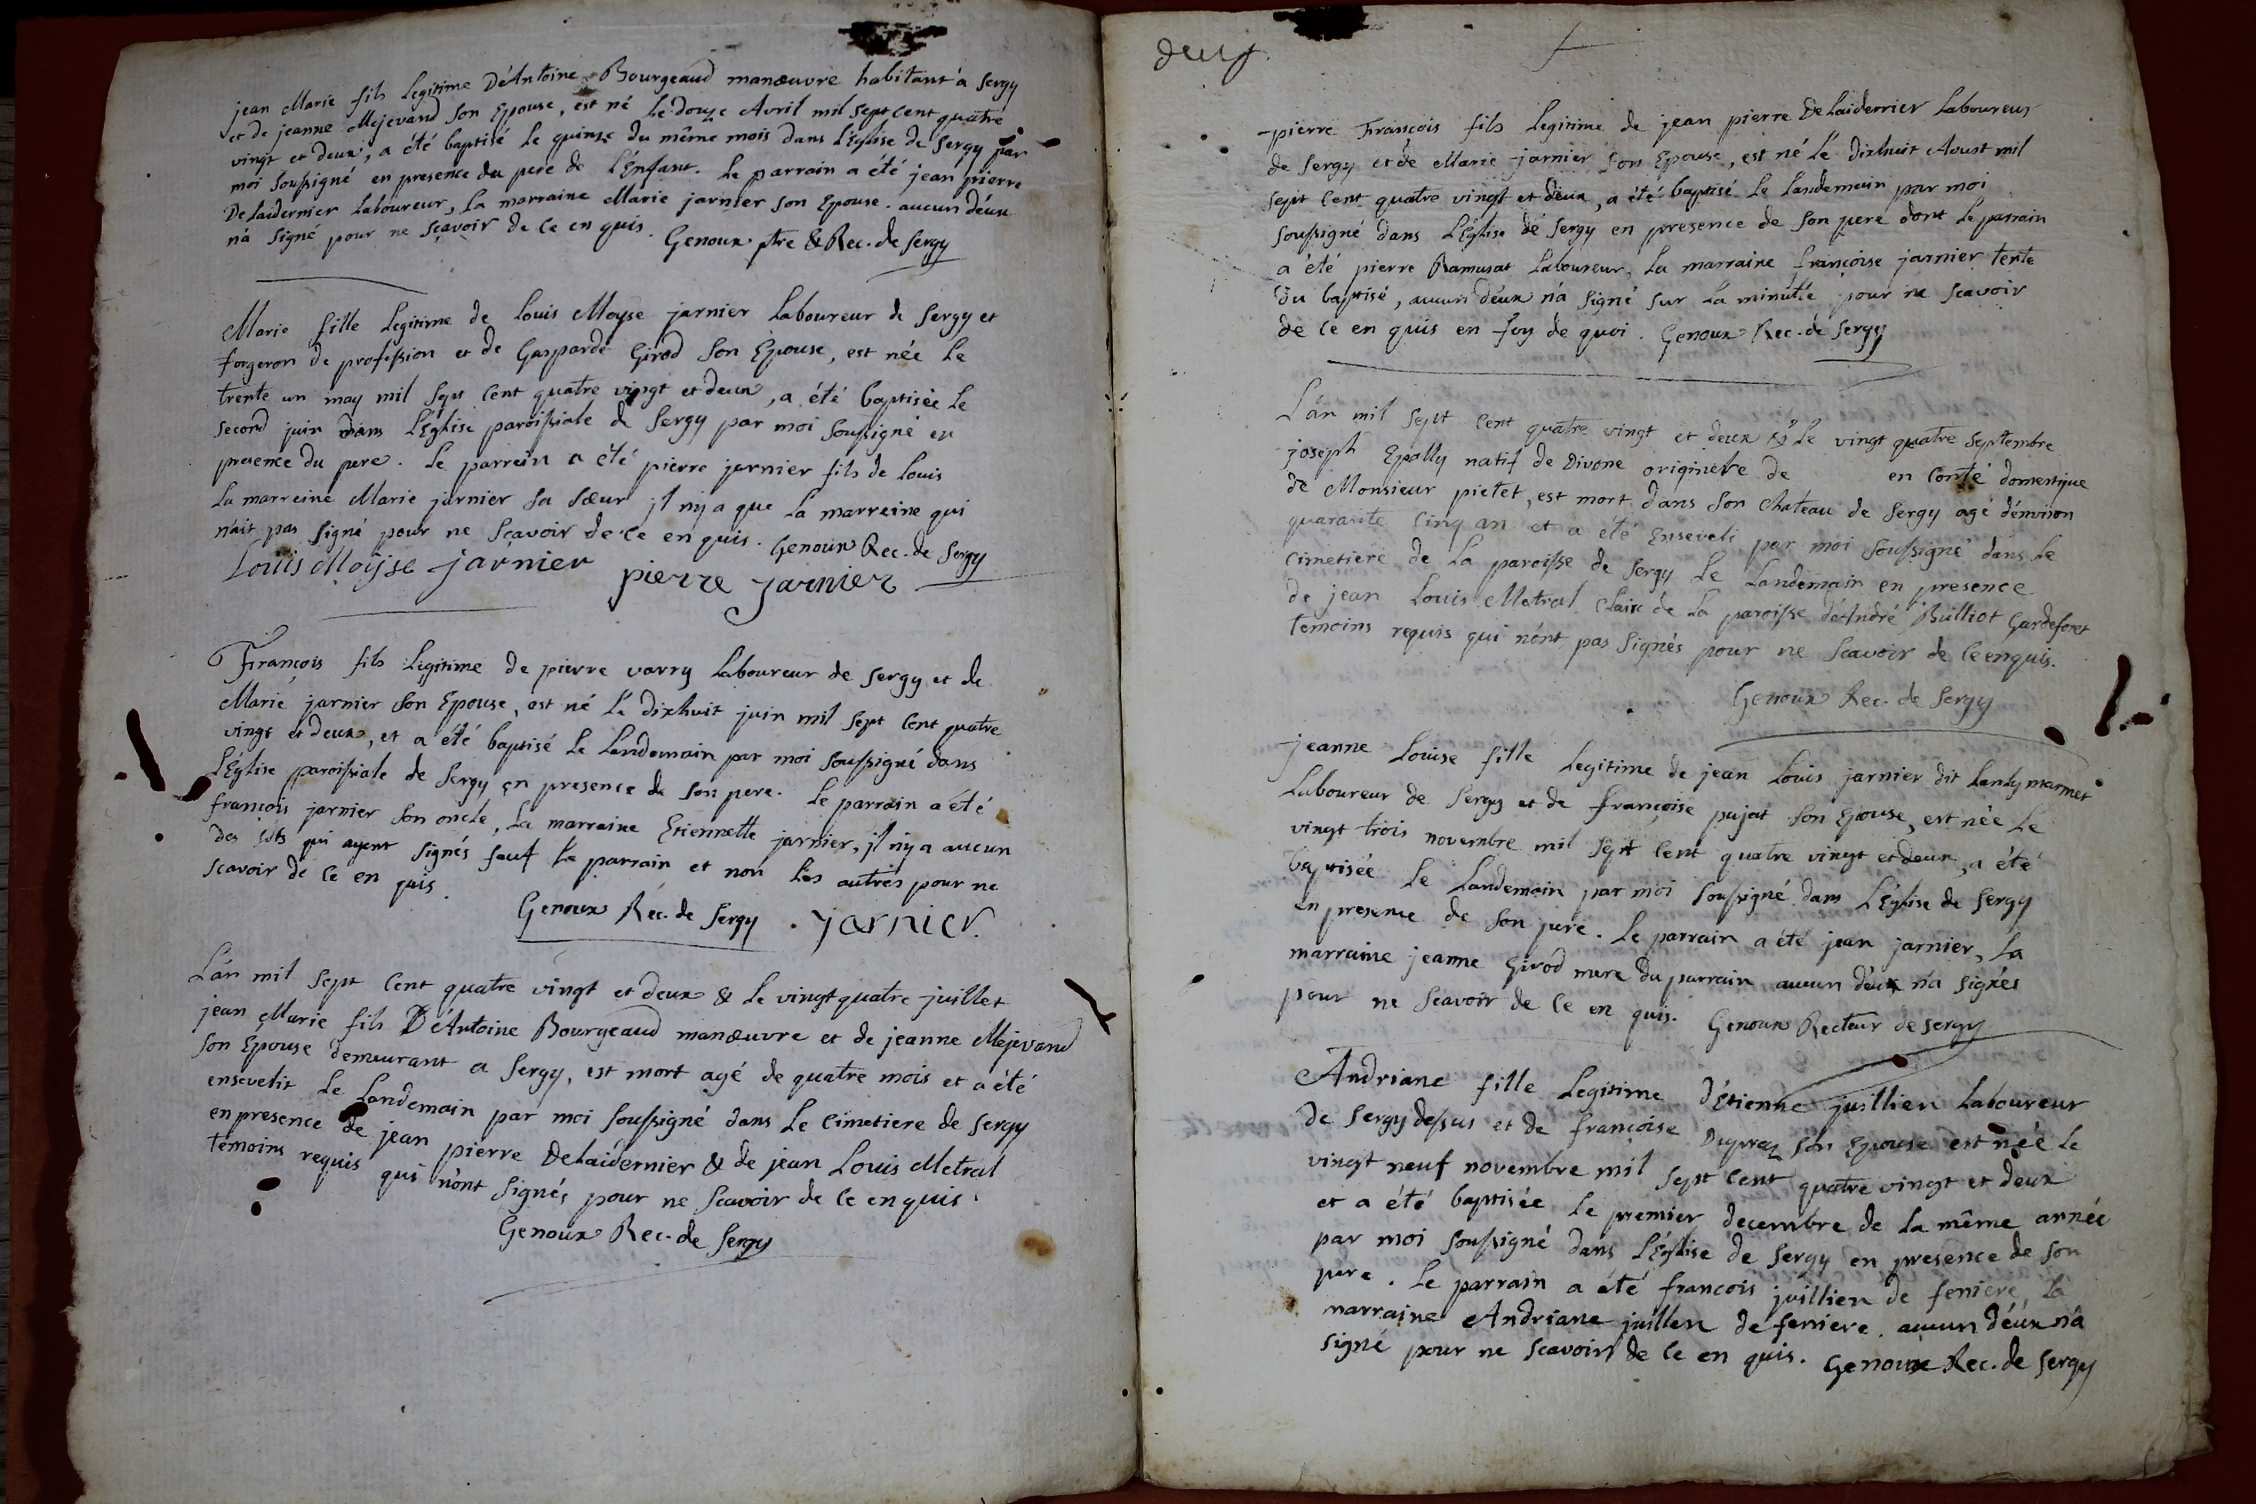 jean Marie fils Legitime D'éAntoine Bourgeaud manœuvre habitant à Sergy
et de jeanne Mejevand Son Epouse, est né Le douze Avril mil Sept Cent quatre
vingt et deux, a été baptisé Le quinze du même mois dans L'Eglise de Sergy par
moi Soussigné en presence du pere de L'Enfant. Le parrain a été jean pierre
DeLaidernier Laboureur, La marraine Marie jarnier Son Epouse. aucun d'eux
n'a Signé pour ne sçavoir de ce en quis. Genoux ptre & Rec. de Sergy
Marie fille Legitime de Louis Moyse jarnier Laboureur de Sergy et
forgeron de profession et de Gasparde Girod Son Epouse, est née Le
trente un may mil Sept Cent quatre vingt et deux, a été baptisée Le
Second juin dans L'Eglise paroissiale de Sergy par moi Soussigné en
presence du pere. Le parrein a été pierre jarnier fils de Louis
La marreine Marie jarnier Sa Sœur jl n'y a que La marreine qui
n'ait pas Signé pour ne Sçavoir de ce en quis. Genoux Rec. de Sergy
Louis Moÿse jarnier pierre jarnier
François fils Legitime de pierre varry Laboureur de Sergy et de
Marie jarnier Son Epouse, est né Le dixhuit juin mil Sept Cent quatre
vingt et deux, et a été baptisé Le Landemain par moi Soussigné dans
L'Eglise paroissiale de Sergy en presence de Son pere. Le parrain a été
françois jarnier Son oncle, La marraine Etiennette jarnier, jl n'y a aucun
des qui ayent Signés Sauf Le parrain et non Les autres pour ne
Scavoir de ce en quis.
Genoux Rec. de Sergy . jarnier.
L'an mil Sept Cent quatre vingt et deux & Le vingt quatre juillet
jean Marie fils D'éAntoine Bourgeaud manœuvre et de jeanne Mejevand
Son Epouse demeurant a Sergy, est mort agé de quatre mois et a été
ensevelit Le Landemain par moi Soussigné dans Le Cimetiere de Sergy
en presence de jean pierre DeLaidernier & de jean Louis Metral
temoins requis qui n'ont Signés pour ne Scavoir de ce en quis.
Genoux Rec. de Sergy
deux.
pierre François fils Legitime de jean pierre DeLaidernier Laboureur
de Sergy et de Marie jarnier Son Epouse, est né Le Dixhuit Aoust mil
Sept Cent quatre vingt et deux, a été baptisé Le Landemain par moi
Soussigné dans L'Eglise de Sergy en presence de Son pere dont Le parrain
a été pierre Ramusat Laboureur, La marraine françoise jarnier tente
du baptisé, aucun d'eux n'a Signé sur La minute pour ne Scavoir
de ce en quis en foy de quoi. Genoux Rec. de Sergy
L'an mil Sept Cent quatre vingt et deux & Le vingt quatre Septembre
joseph Epally natif de Divone originere de en Conté domestique
de Monsieur pictet, est mort dans Son Chateau de Sergy agé d'environ
quarante Cinq an et a été Enseveli par moi Soussigné dans Le
Cimetiere de La paroisse de Sergy Le Landemain en presence
de jean Louis Metral Clair de La paroisse d'éAndré Builliot Gardeforet
temoins requis qui n'ont pas Signés pour ne Scavoir de ce enquis.
Genoux Rec. de Sergy
jeanne Louise fille Legitime de jean Louis jarnier dit Landy marmet
Laboureur de Sergy et de françoise pujat Son Epouse, est née Le
vingt trois novembre mil Sept Cent quatre vingt et deux, a été
baptisée Le Landemain par moi Soussigné dans L'Eglise de Sergy
en presence de Son pere. Le parrain a été jean jarnier, La
marraine jeanne Girod mere du parrain aucun d'eux n'a Signés
pour ne Scavoir de ce en quis. Genoux Recteur de Sergy
Andriane fille Legitime d'Etienne juillien Laboureur
de Sergy dessus et de françoise Dupraz Son Epouse est née Le
vingt neuf novembre mil Sept Cent quatre vingt et deux
et a été baptisée Le premier decembre de La même année
par moi Soussigné dans L'Eglise de Sergy en presence de Son
pere. Le parrain a été francois juillien de feniere, La
marraine Andriane juillen de feniere. aucun d'eux n'a
Signé pour ne Scavoir de ce en quis. Genoux Rec. de Sergy